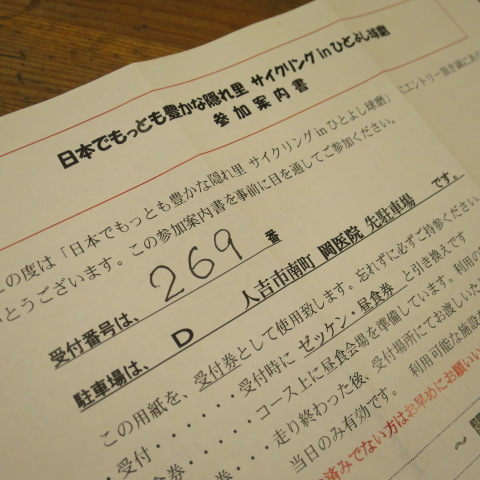 日本でもっとも豊かな隠れ里 サイクリング in ひとよし球磨
参加案内書
この度は「日本でもっとも豊かな隠れ里 サイクリング in ひとよし球磨」にエントリー頂き誠にあり
とうございます。この参加案内書を事前に目を通してご参加ください。
受付番号は、 269 番
駐車場は、 D 人吉市南町 岡医院 先駐車場 です。
この用紙を、受付券として使用致します。忘れずに必ずご持参ください。
・受付・・・・・・受付時に ゼッケン・昼食券 と引き換えです
食券・・・・・コース上に昼食会場を準備しています。利用の
券・・・・走り終わった後、受付場所にてお渡しいた
当日のみ有効です。 利用可能な施設
済みでない方はお早めにお願い